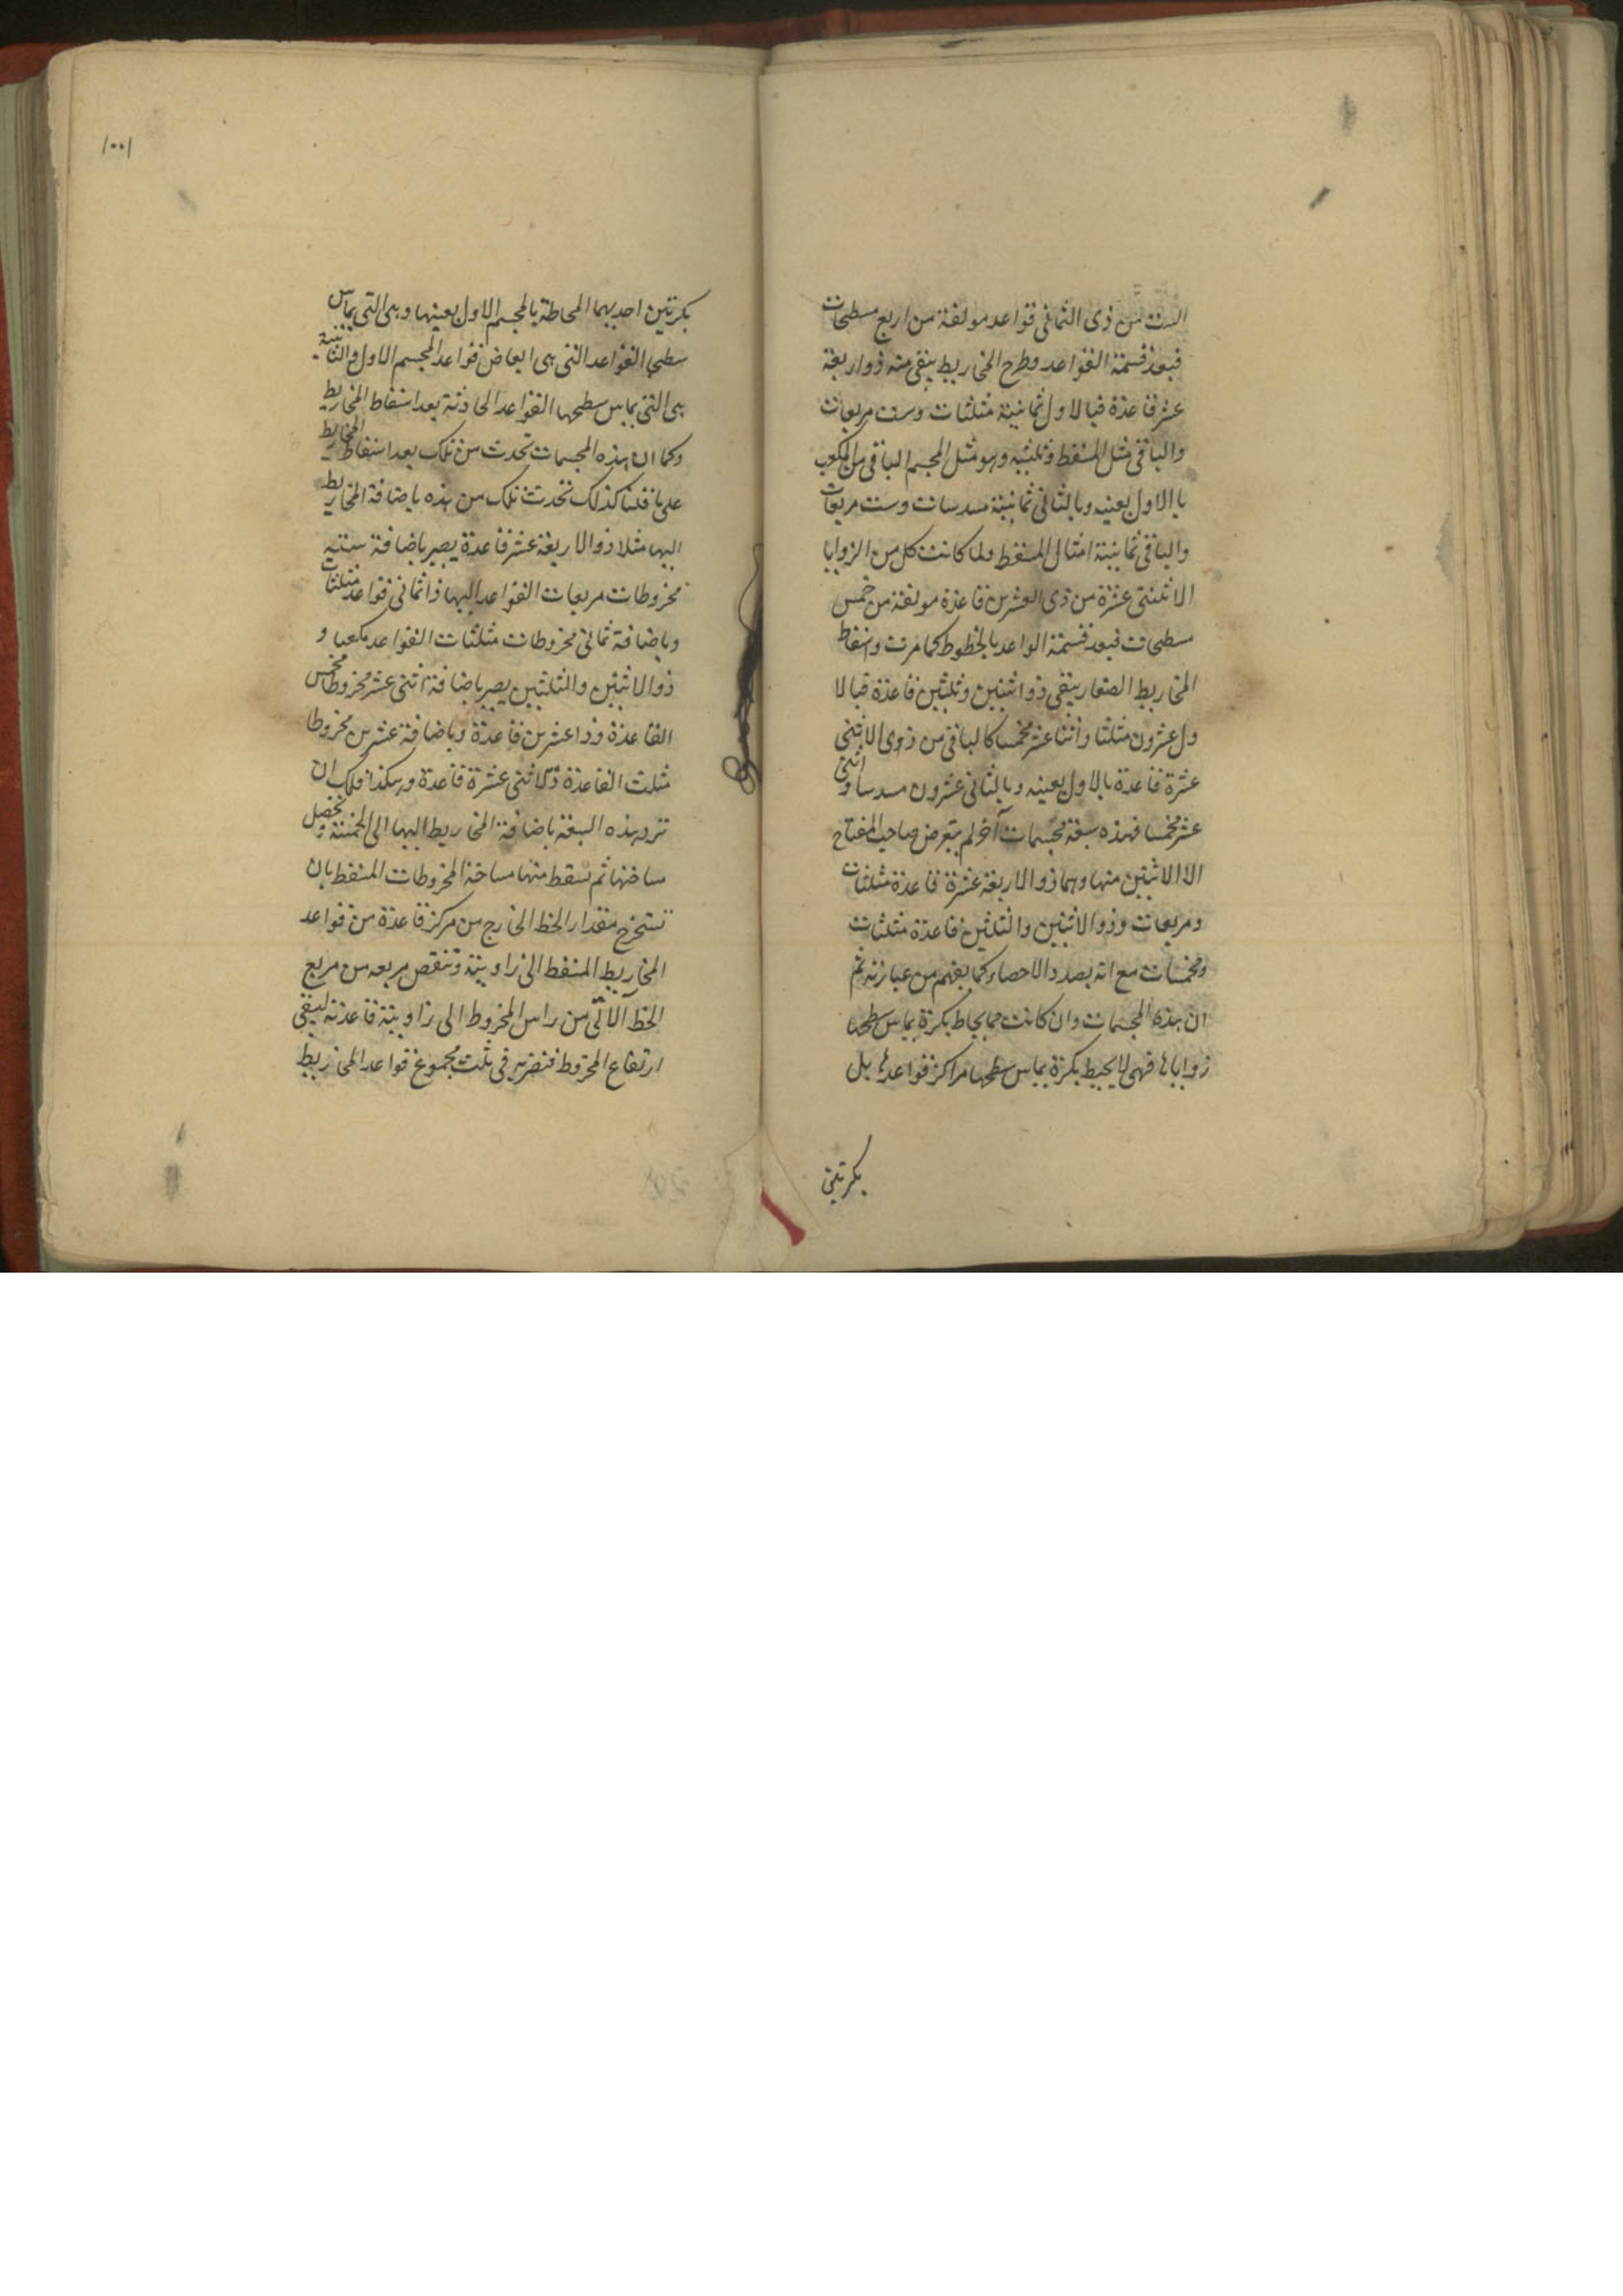 الست من ذى الثمانى قواعد مولفة من اربع مسطحات
فبعد قسمة القواعد وطرح المخاريط يبقى منه ذو اربعة
عشر قاعدة فبالاول ثمانية مثلثات وست مربعات
والباقى مثل المسقط وثلثيه وهو مثل المجسم الباقى من المكعب
بالاول بعينه وبالثانى ثمانية مسدسات وست مربعات
والباقى ثمانية امثال المسقط ولما كانت كل من الزوايا
الاثنتى عشرة من ذى العشرين قاعدة مولفة من خمس
سطحات فبعد قسمة القواعد بالخطوط كما مرت واسقاط
المخاريط الصغار يبقى ذو اثنين وثلثين قاعدة فبالا
ول عشرون مثلثا واثنا عشر مخمسا كالباقى من ذوى الاثنى
عشرة قاعدة بالاول بعينه وبالثانى عشرون مسدسا واثنى
عشر مخمسا فهذه سبعة مجسمات آخر لم يتعرض صاحب المفتاح
الا الاثنين منها وهما ذو الاربعة عشرة قاعدة مثلثات
ومربعات وذو الاثنين والثلثين قاعدة مثلثات
ومخمسات مع انه بصدد الاحصاء كما يفهم من عبارته ثم
ان هذه المجسمات وان كانت مما يحاط بكرة يماس سطحها
زواياها فهى لا يحيط بكرة يماس سطحها مراكز قواعدها بل
بكرتين
١٠٠١
بكرتين احديهما المحاطة بالمجسم الاول بعينها وهى التى يماس
سطحها القواعد التى هى ابعاض قواعد المجسم الاول والثانية
هى التى يماس سطحها القواعد الحادثة بعد اسقاط المخاريط
وكما ان هذه المجسمات تحدث من تلك بعد اسقاط المخاريط
على ما قلنا كذلك تحدث تلك من هذه باضافة المخاريط
اليها مثلا ذو الاربعة عشر قاعدة يصير باضافة ستة
مخروطات مربعات القواعد اليها ذا ثمانى قواعد مثلثات
وباضافة ثمانى مخروطات مثلثات القواعد مكعبا و
ذو الاثنين والثلثين يصير باضافة اثنى عشر مخروطا مخمس
القاعدة ذا عشرين قاعدة وباضافة عشرين مخروطا
مثلث القاعدة ذا اثنى عشرة قاعدة وهكذا فلك ان
ترد هذه السبعة باضافة المخاريط اليها الى الخمسة وتحصل
مساحتها ثم تسقط منها مساحة المخروطات المسقط بان
تستخرج مقدار الخط الخارج من مركز قاعدة من قواعد
المخاريط المسقط الى زاويته وتنقص مربعه من مربع
الخط الآتى من راس المخروط الى زاوية قاعدته ليبقى
ارتفاع المخروط فتضربه فى ثلث مجموع قواعد المخاريط